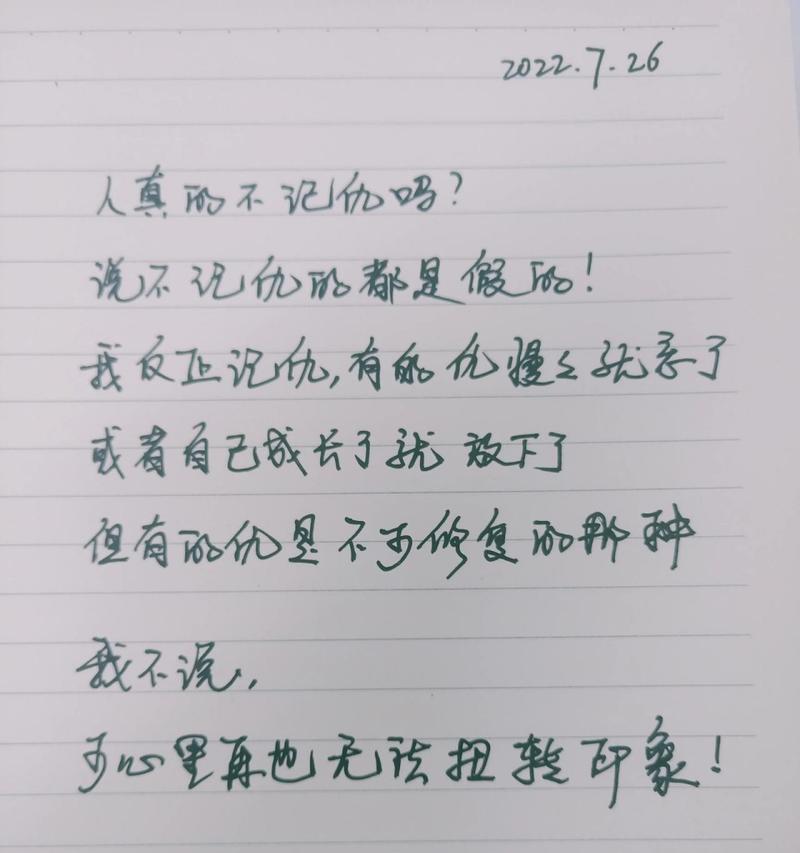 2022.7.26
人真的不记仇吗?
说不记仇的都是假的!
我反正记仇,有的仇慢々就忘了
或者自己成长了就放下了
但有的仇是不可修复的那种
我不说,
可心里再也无法扭转印象!